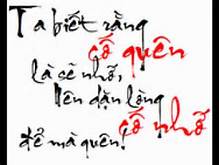 Ta biết rằng
cố quên
là sẽ nhớ,
Nên dặn lòng
cố nhớ
để mà quên!